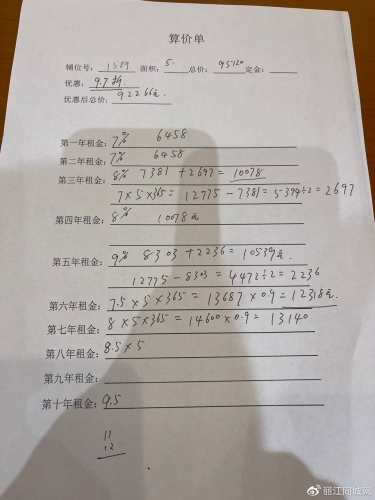 算价单
铺位号：1369 面积：5. 总价：95120 定金：
优惠：9.7折
优惠后总价：92266元.
第一年租金：7% 6458
第二年租金：7% 6458
第三年租金：8% 7381+2697=10078
7×5×365=12775-7381=5394÷2=2697
第四年租金：8% 10078元
第五年租金：9% 8303+2236=10539元.
12775-8303=4472÷2=2236
第六年租金：7.5×5×365=13687×0.9=12318元.
第七年租金：8×5×365=14600×0.9=13140
第八年租金：8.5×5
第九年租金：
第十年租金：9.5
11
12
丽江同城网